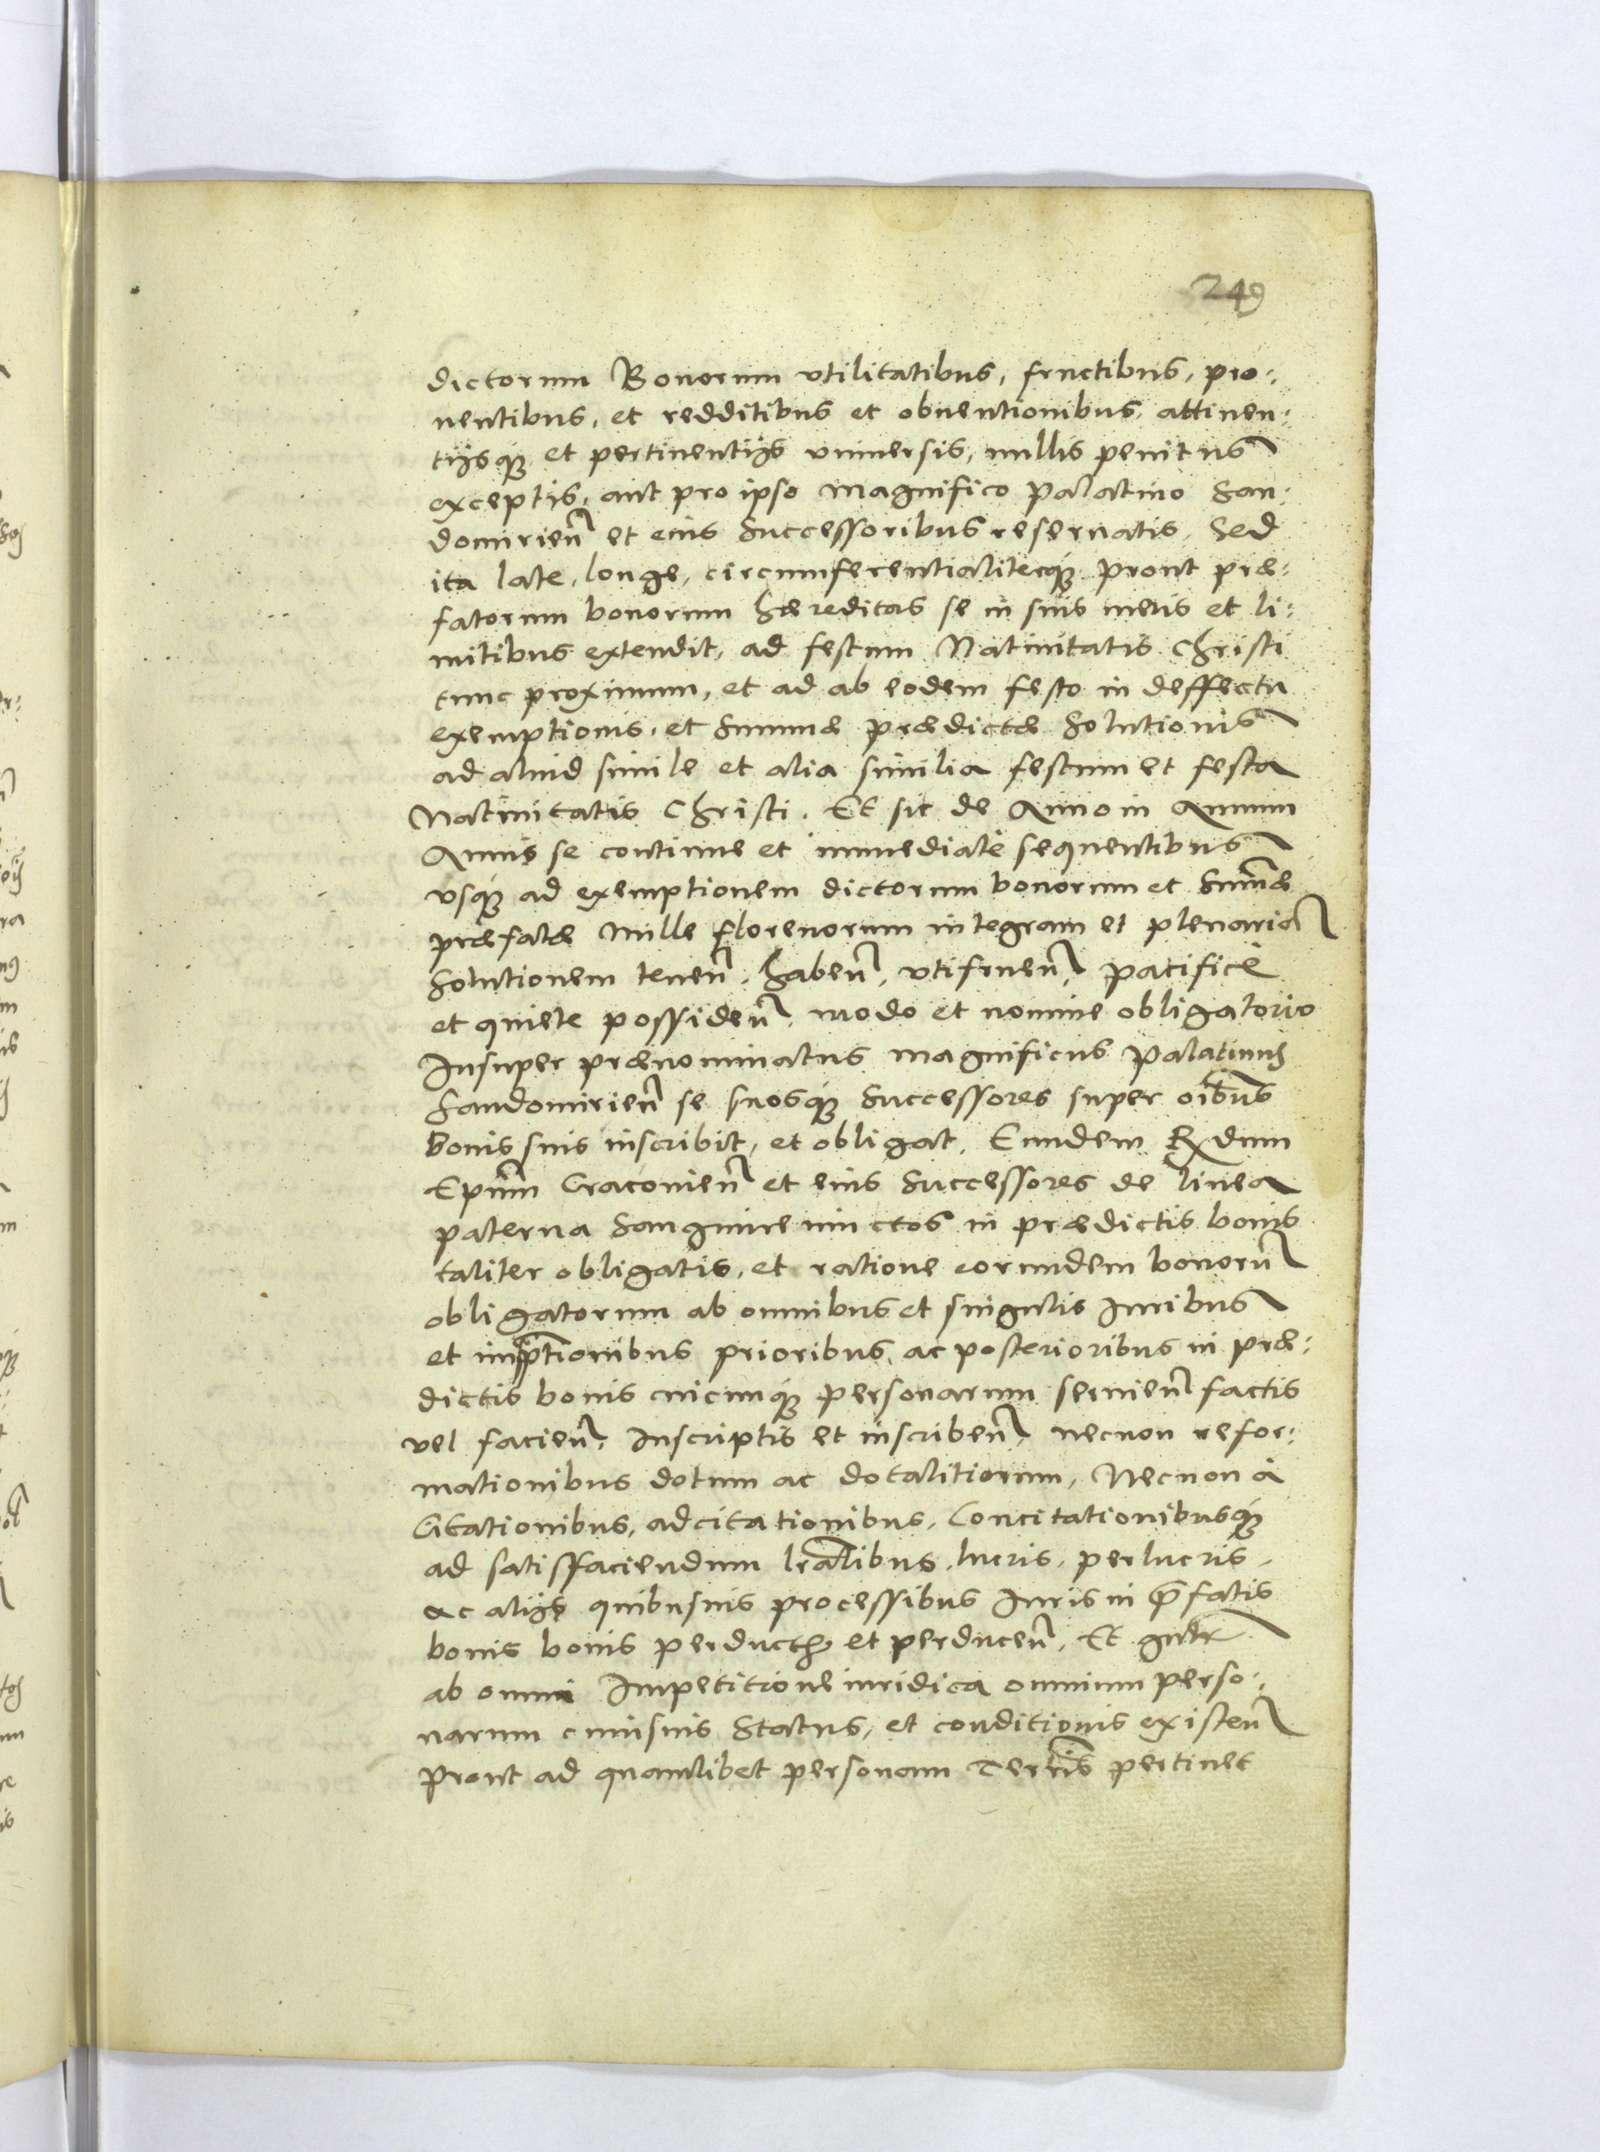 249
dictorum Bonorum vtilitatibus, fructibus, pro-
uentibus, et redditibus et obuentionibus, attinen-
tijsq́ et pertinentijs vniuersis, nullis penitus
exceptis, aut pro ipso magnifico Palatino San-
domirien̄ et eius Successoribus reseruatis, Sed
ita late, longe, circumferentialiterq́ prout præ-
fatorum bonorum hæreditas se in suis metis et li-
mitibus extendit, ad festum Natiuitatis Christi
tunc proximum, et ad ab eodem festo in deffectu
exemptionis, et Summæ prædictæ Solutionis
ad aliud simile et alia similia festum et festa
Natiuitatis Christi. Et sic de Anno in Annum
Annis se continue et immediatè sequentibus
vsq́ ad exemptionem dictorum bonorum et Sum̄æ
præfatæ Mille florenorum integram et plenariā
Solutionem tenen̄, haben̄, vtifruen̄, pacificè
et quiete possiden̄, modo et nomine obligatorio
Insuper prænominatus magnificus Palatinus
Sandomirien̄ se suosq́ Successores super oībus
bonis suis inscribit, et obligat, Eundem Rdum
Epūm Cracouien̄ et eius Successores de linea
paterna Sanguine iunctos in prædictis bonis
taliter obligatis, et ratione eorundem bonorū
obligatorum ab omnibus et singulis Iuribus
et imp̄tionibus prioribus, ac posterioribus in præ-
dictis bonis cuicunq́ personarum seruien̄ factis
vel facien̄, Inscriptis et inscriben̄, necnon refor-
mationibus dotum ac dotalitiorum, Necnon à
Citationibus, adcitationibus, Concitationibusq́
ad satisfaciendum lrālibus, lucris, perlucris,
ac alijs quibusuis processibus Iuris in p̄fatis
bonis bonis perductis et perducen̄, Et gn̄lr
ab omni Impetitione iuridica omnium perso-
narum cuiusuis Status, et conditionis existen̄
Prout ad quamlibet personam Ter̄is pertinet